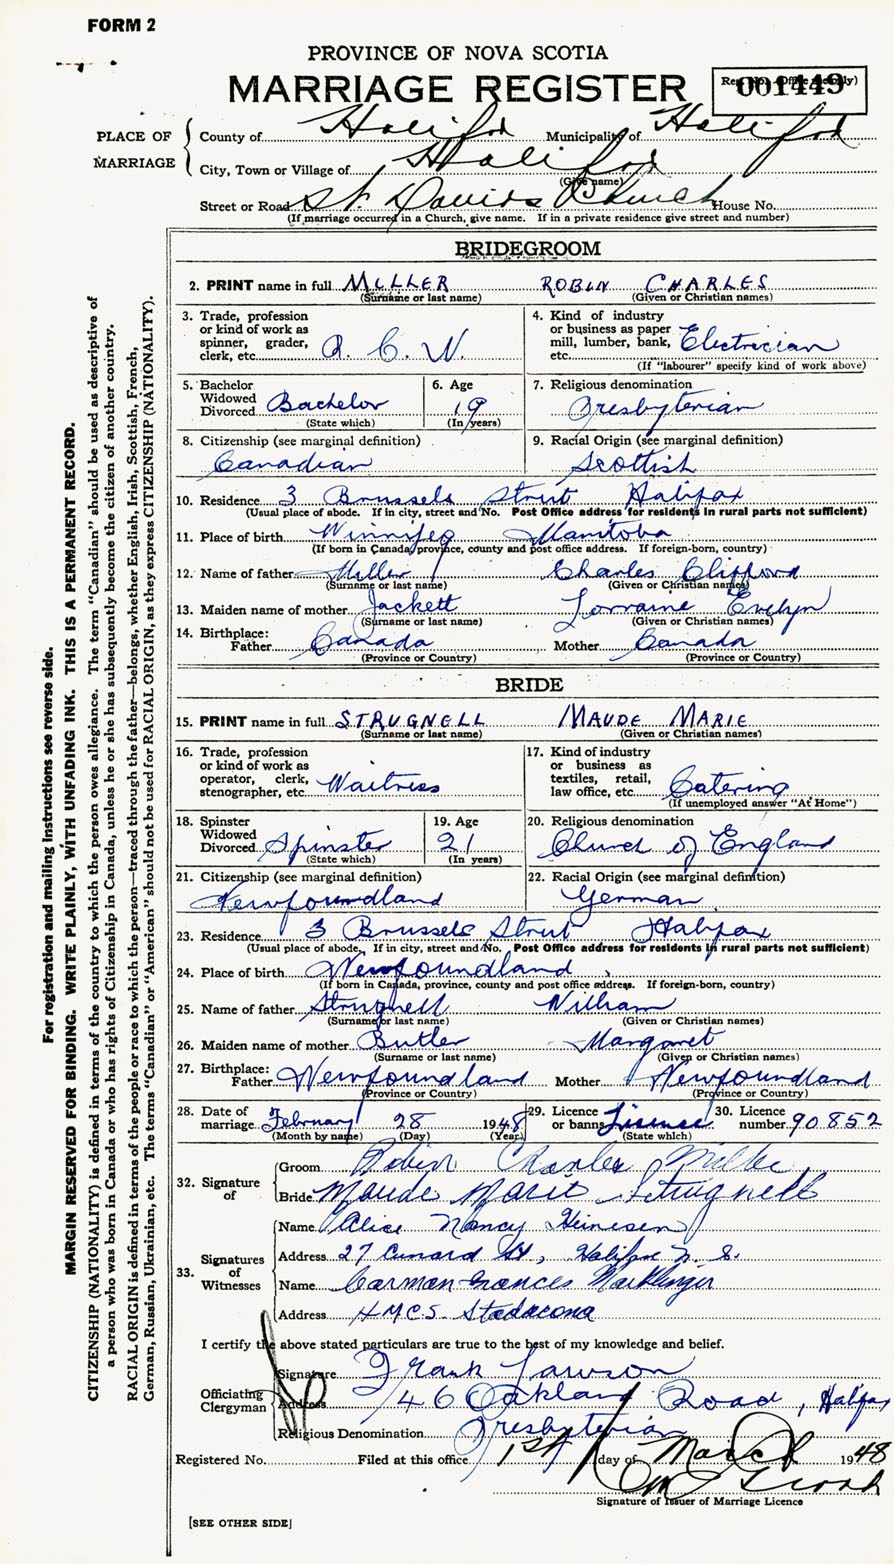 FORM 2
PROVINCE OF NOVA SCOTIA
MARRIAGE REGISTER
Reg. No. (Office use only)
001449
PLACE OF MARRIAGE
County of Halifax Municipality of Halifax
City, Town or Village of Halifax
(Give name)
Street or Road St Davids Church House No.
(If marriage occurred in a Church, give name. If in a private residence give street and number)
BRIDEGROOM
2. PRINT name in full MILLER ROBIN CHARLES
(Surname or last name) (Given or Christian names)
3. Trade, profession or kind of work as spinner, grader, clerk, etc. R. C. N.
4. Kind of industry or business as paper mill, lumber, bank, etc. Electrician
(If "labourer" specify kind of work above)
5. Bachelor Widowed Divorced Bachelor
(State which)
6. Age 19
(In years)
7. Religious denomination
Presbyterian
8. Citizenship (see marginal definition)
Canadian
9. Racial Origin (see marginal definition)
Scottish
10. Residence 3 Brussels Street Halifax
(Usual place of abode. If in city, street and No. Post Office address for residents in rural parts not sufficient)
11. Place of birth Winnipeg Manitoba
(If born in Canada, province, county and post office address. If foreign-born, country)
12. Name of father Miller Charles Clifford
(Surname or last name) (Given or Christian names)
13. Maiden name of mother Jackett Lorraine Evelyn
(Surname or last name) (Given or Christian names)
14. Birthplace:
Father Canada Mother Canada
(Province or Country) (Province or Country)
BRIDE
15. PRINT name in full STRUGNELL MAUDE MARIE
(Surname or last name) (Given or Christian names)
16. Trade, profession or kind of work as operator, clerk, stenographer, etc. Waitress
17. Kind of industry or business as textiles, retail, law office, etc. Catering
(If unemployed answer "At Home")
18. Spinster Widowed Divorced Spinster
(State which)
19. Age
21
(In years)
20. Religious denomination
Church of England
21. Citizenship (see marginal definition)
Newfoundland
22. Racial Origin (see marginal definition)
German
23. Residence 3 Brussels Street Halifax
(Usual place of abode. If in city, street and No. Post Office address for residents in rural parts not sufficient)
24. Place of birth Newfoundland
(If born in Canada, province, county and post office address. If foreign-born, country)
25. Name of father Strugnell William
(Surname or last name) (Given or Christian names)
26. Maiden name of mother Butler Margaret
(Surname or last name) (Given or Christian names)
27. Birthplace:
Father Newfoundland Mother Newfoundland
(Province or Country) (Province or Country)
28. Date of marriage February 28 1948
(Month by name) (Day) (Year)
29. Licence or banns License
(State which)
30. Licence number 90852
32. Signature of
Groom Robin Charles Miller
Bride Maude Marie Strugnell
33. Signatures of Witnesses
Name Alice Nancy
Address 27 Cunard St, Halifax N. S.
Name Carman Frances
Address H.M.C.S. Stadacona
I certify the above stated particulars are true to the best of my knowledge and belief.
Officiating Clergyman
Signature Frank Lawson
Address 46 Oakland Road, Halifax
Religious Denomination Presbyterian
Registered No. Filed at this office 1st day of March 1948
Signature of Issuer of Marriage Licence
[SEE OTHER SIDE]
For registration and mailing instructions see reverse side.
MARGIN RESERVED FOR BINDING. WRITE PLAINLY, WITH UNFADING INK. THIS IS A PERMANENT RECORD.
CITIZENSHIP (NATIONALITY) is defined in terms of the country to which the person owes allegiance. The term "Canadian" should be used as descriptive of
a person who was born in Canada or who has rights of Citizenship in Canada, unless he or she has subsequently become the citizen of another country.
RACIAL ORIGIN is defined in terms of the people or race to which the person—traced through the father—belongs, whether English, Irish, Scottish, French,
German, Russian, Ukrainian, etc. The terms "Canadian" or "American" should not be used for RACIAL ORIGIN, as they express CITIZENSHIP (NATIONALITY).